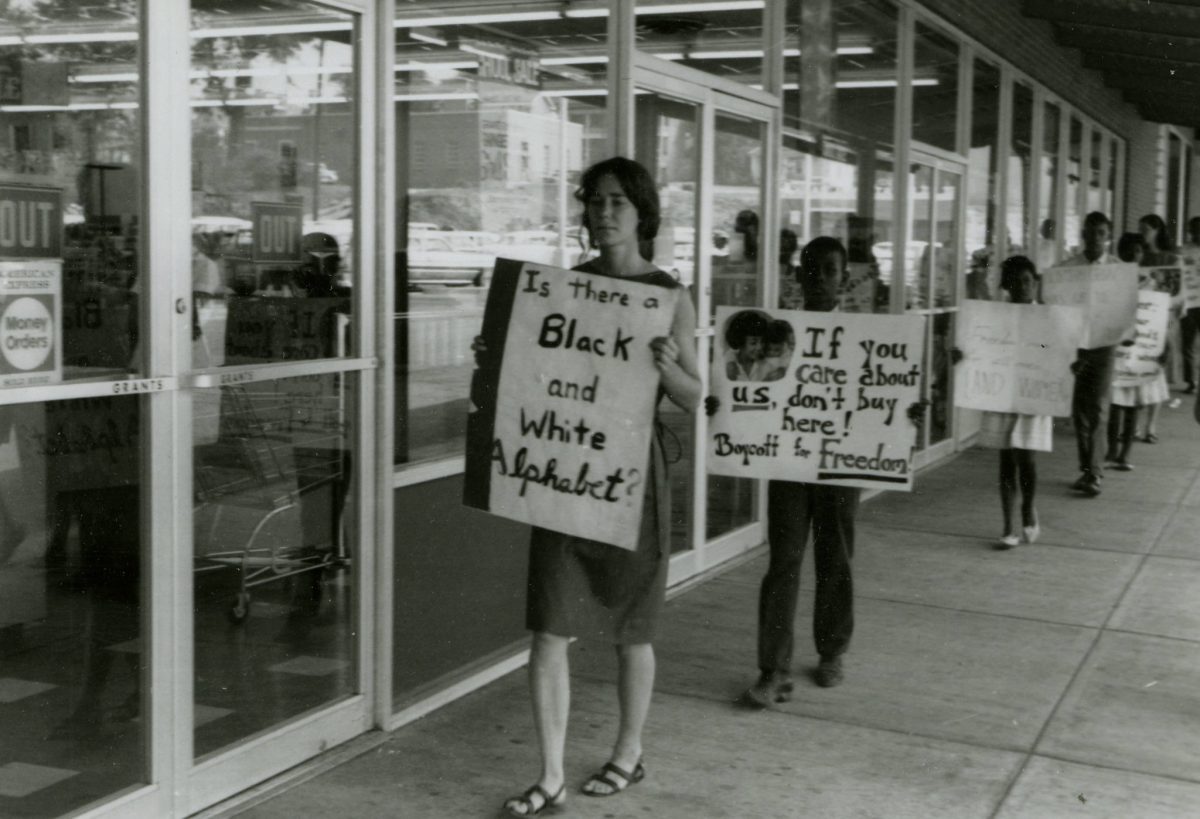 OUT
AMERICAN
EXPRESS
Money
Orders
SOLD HERE
GRANTS
GRANTS
OUT
Is there a
Black
and
White
Alphabet?
If you
care about
us, don't buy
here!
Boycott for Freedom!
LAND